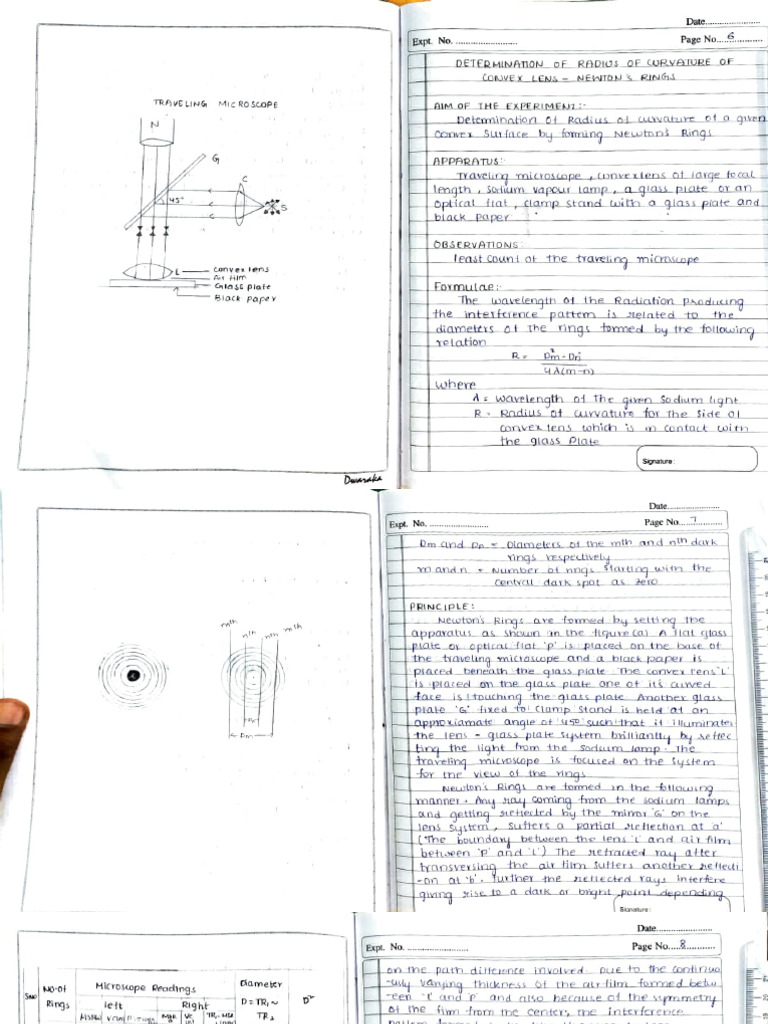 TRAVELING MICROSCOPE
N
G
C
45°
S
L
Convex lens
Air film
Glass plate
Black paper
Dwaraka
Date....................
Expt. No. ......................
Page No...6...........
DETERMINATION OF RADIUS OF CURVATURE OF
CONVEX LENS - NEWTON'S RINGS
AIM OF THE EXPERIMENT:-
Determination of Radius of curvature of a given
Convex Surface by forming Newton's Rings
APPARATUS:-
Traveling microscope, convex lens of large focal
length, Sodium vapour lamp, a glass plate or an
optical flat, clamp stand with a glass plate and
black paper
OBSERVATIONS:
least count of the traveling microscope
Formulae:-
The wavelength of the Radiation producing
the interference pattern is related to the
diameters of the rings formed by the following
relation
R = Dm² - Dn²
4λ(m-n)
where
λ = wavelength of the given Sodium light
R = Radius of curvature for the side of
convex lens which is in contact with
the glass Plate
Signature :
mth
nth
nth
mth
Dm
Date....................
Expt. No. ......................
Page No...7...........
Dm and Dn = Diameters of the mth and nth dark
rings respectively
m and n = Number of rings starting with the
central dark spot as zero
PRINCIPLE:
Newton's Rings are formed by setting the
apparatus as shown in the figure (a) A flat glass
plate or optical flat 'P' is placed on the base of
the traveling microscope and a black paper is
placed beneath the glass plate The convex lens 'L'
is placed on the glass plate one of it's curved
face is touching the glass plate Another glass
plate 'G' fixed to Clamp Stand is held at an
approximate angle of 45° such that it illuminates
the lens - glass plate system brilliantly by reflec
ting the light from the sodium lamp. The
traveling microscope is focused on the system
for the view of the rings
Newton's Rings are formed in the following
manner. Any ray coming from the sodium lamps
and getting reflected by the mirror 'G' on the
lens system, suffers a partial reflection at a'
(The boundary between the lens 'L' and air film
between 'P' and 'L') The refracted ray after
transversing the air film suffers another reflecti
-on at 'b'. further the reflected rays interfere
giving rise to a dark or bright point depending
Signature :
S.No
No.of
Rings
Microscope Readings
Left
Right
Diameter
D = TR₁ ~
TR₂
D²
Date....................
Expt. No. ......................
Page No...8...........
on the path difference involved due to the continuo
-usly varying thickness of the air film formed betw
-een 'L' and 'P' and also because of the symmetry
of the film from the center, the interference